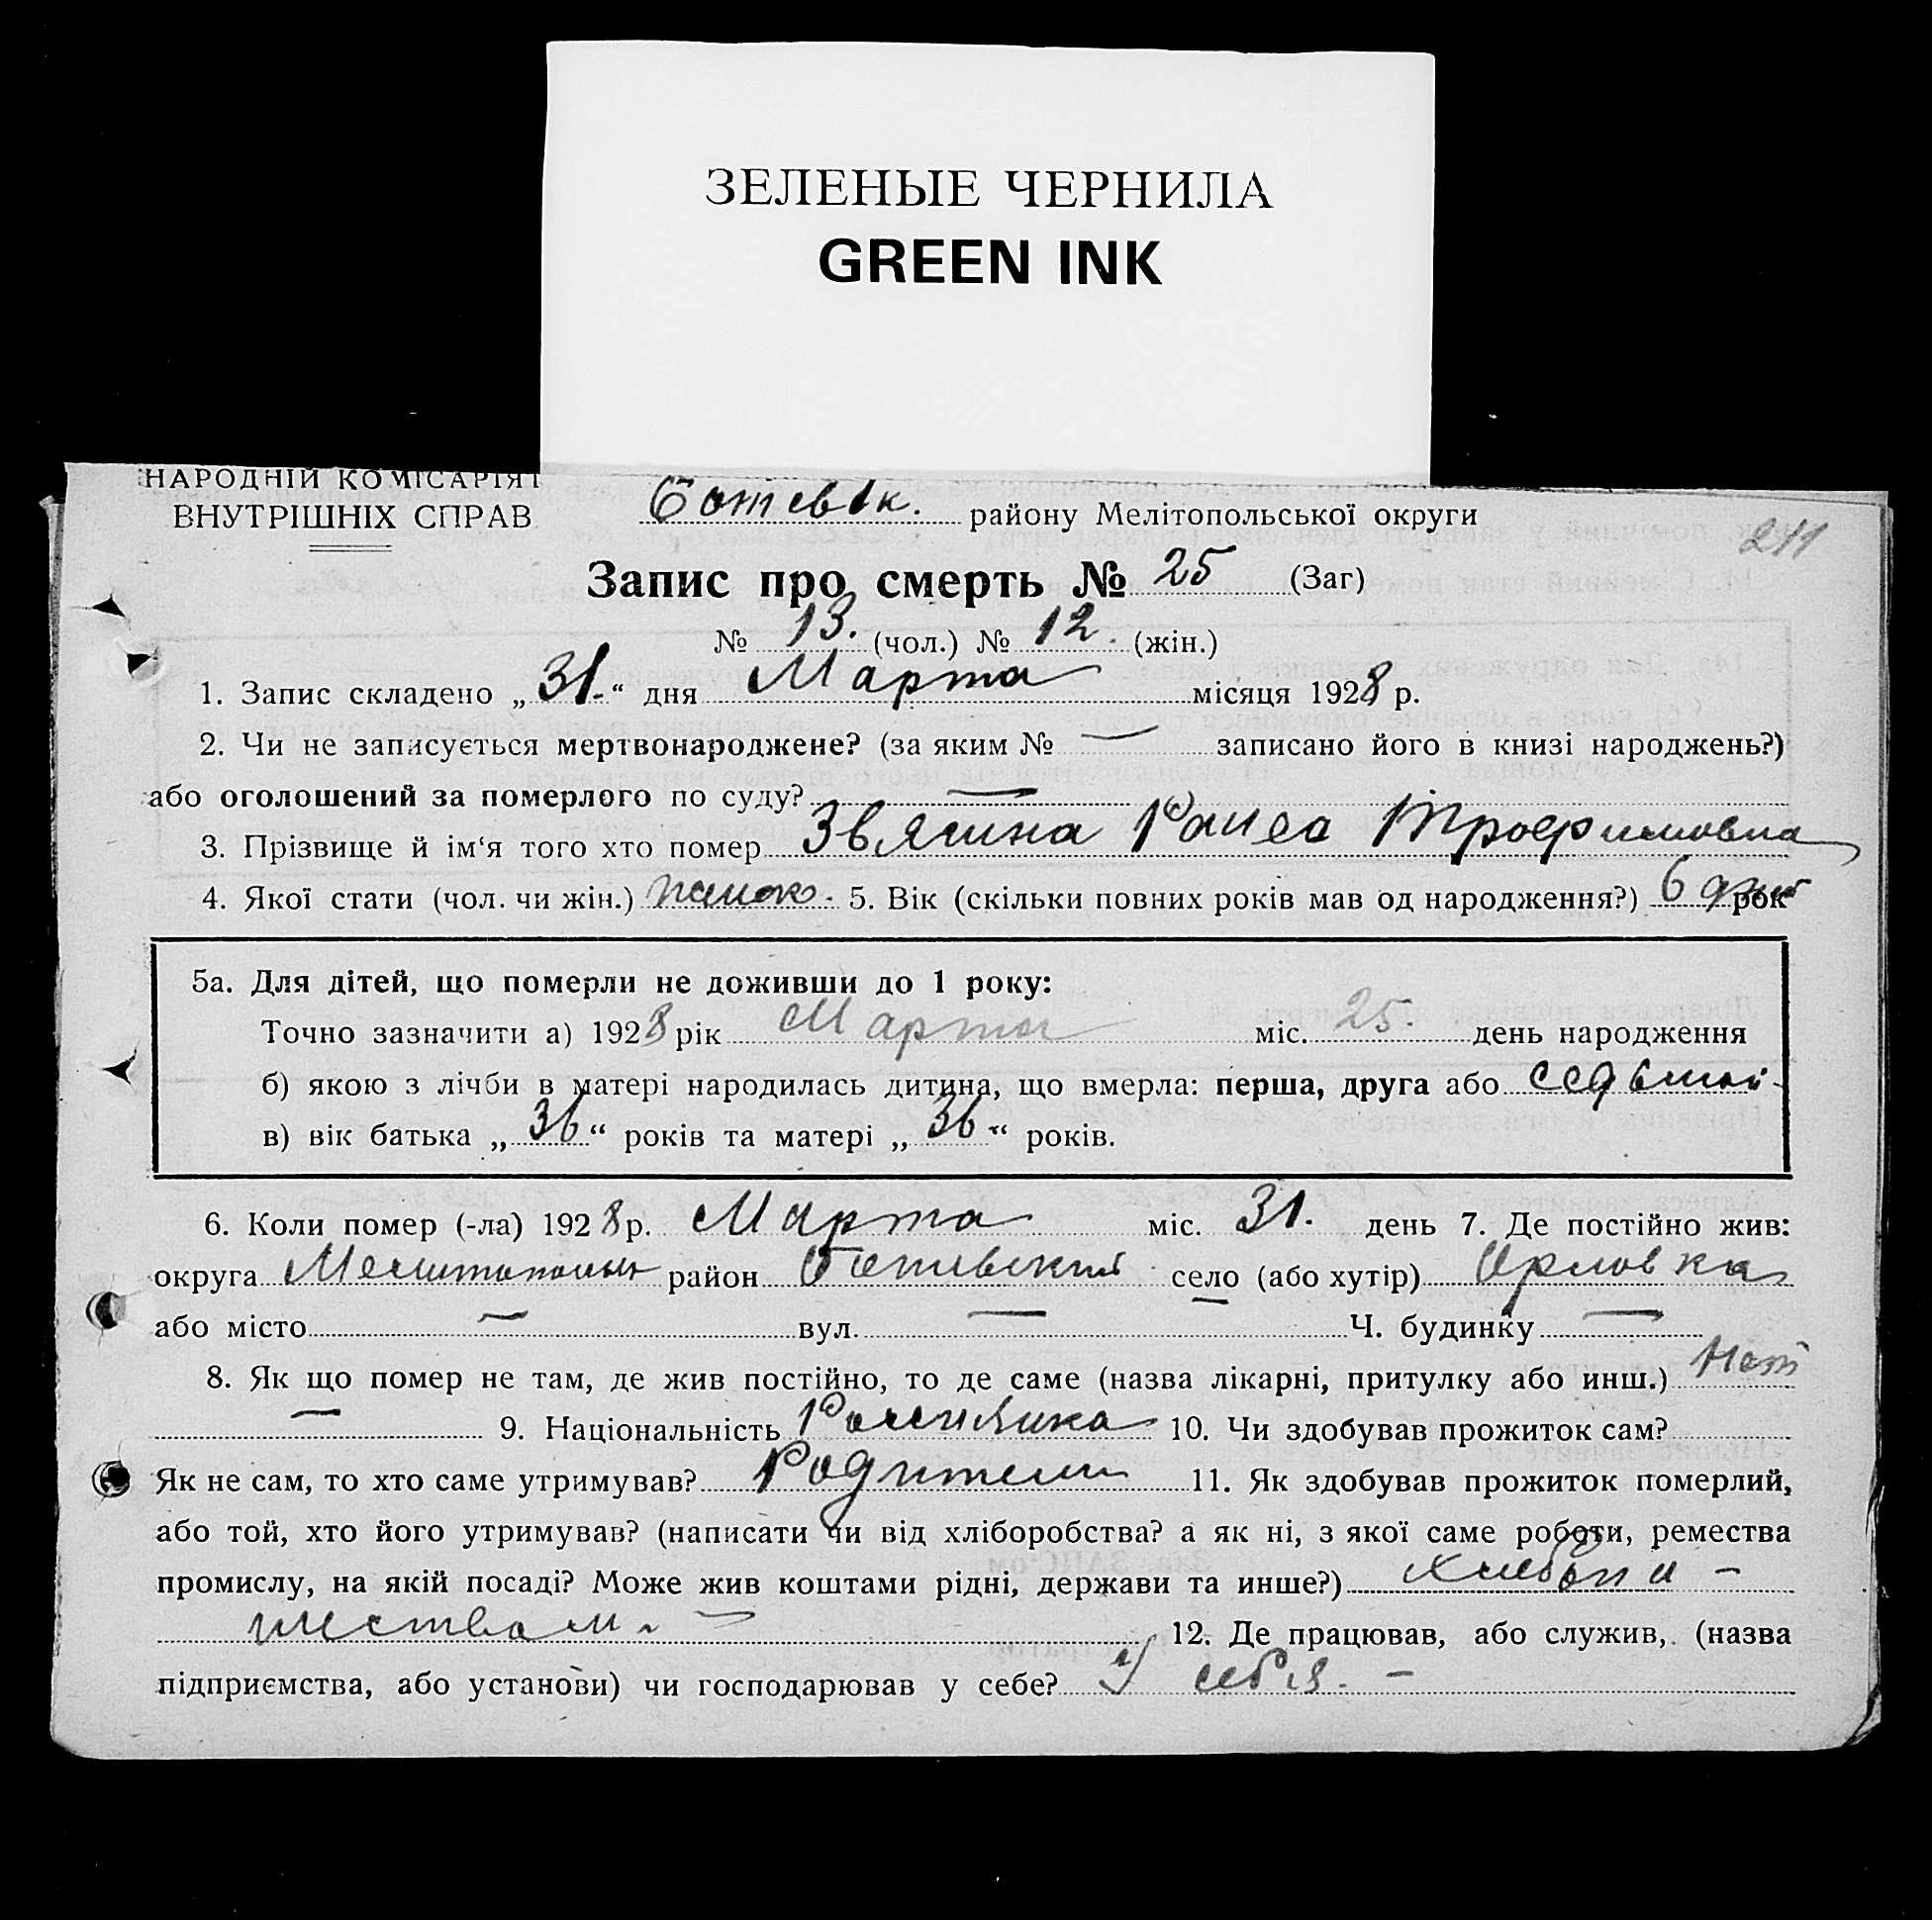 ЗЕЛЕНЫЕ ЧЕРНИЛА
GREEN INK
НАРОДНІЙ КОМІСАРІЯТ
ВНУТРІШНІХ СПРАВ
Ботевск. району Мелітопольської округи
241
Запис про смерть № 25 (Заг)
№ 13. (чол.) № 12. (жін.)
1. Запис складено „31.“ дня Марта місяця 1928 р.
2. Чи не записується мертвонароджене? (за яким № — записано його в книзі народжень?)
або оголошений за померлого по суду? —
3. Прізвище й ім‘я того хто помер Звягина Раиса Трофимовна
4. Якої стати (чол. чи жін.) 5. Вік (скільки повних років мав од народження?) 6 дней рок
5а. Для дітей, що померли не доживши до 1 року:
Точно зазначити а) 1928 рік Марта міс. 25. день народження
б) якою з лічби в матері народилась дитина, що вмерла: перша, друга або седьмой
в) вік батька „36“ років та матері „36“ років.
6. Коли помер (-ла) 1928 р. Марта міс. 31. день 7. Де постійно жив:
округа Мелитополь район Ботивский село (або хутір) Орловка
або місто — вул. — Ч. будинку —
8. Як що помер не там, де жив постійно, то де саме (назва лікарні, притулку або инш.) Нет
— 9. Національність 10. Чи здобував прожиток сам?
Як не сам, то хто саме утримував? Родители 11. Як здобував прожиток померлий,
або той, хто його утримував? (написати чи від хліборобства? а як ні, з якої саме роботи, ремества
промислу, на якій посаді? Може жив коштами рідні, держави та инше?) хлебопа-
шеством. — 12. Де працював, або служив, (назва
підприємства, або установи) чи господарював у себе? У себя. —